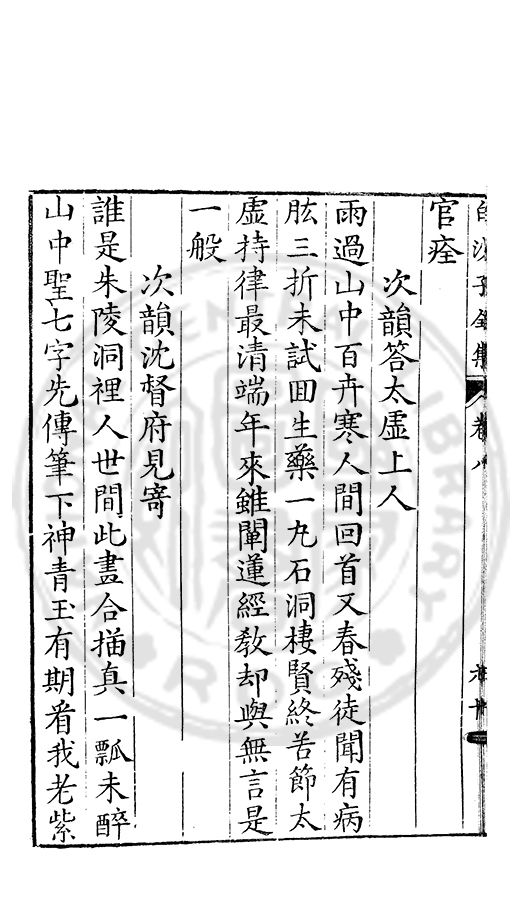 白沙子全集 卷八
官痊
次韻答太虛上人
雨過山中百卉寒人間回首又春殘徒聞有病
肱三折未試囬生藥一九石洞棲賢終苦節太
虛持律最清端年來雖闡蓮經教却與無言是
一般
次韻沈督府見寄
誰是朱陵洞裡人世間此畫合描真一瓢未醉
山中聖七字先傳筆下神青玉有期看我老紫